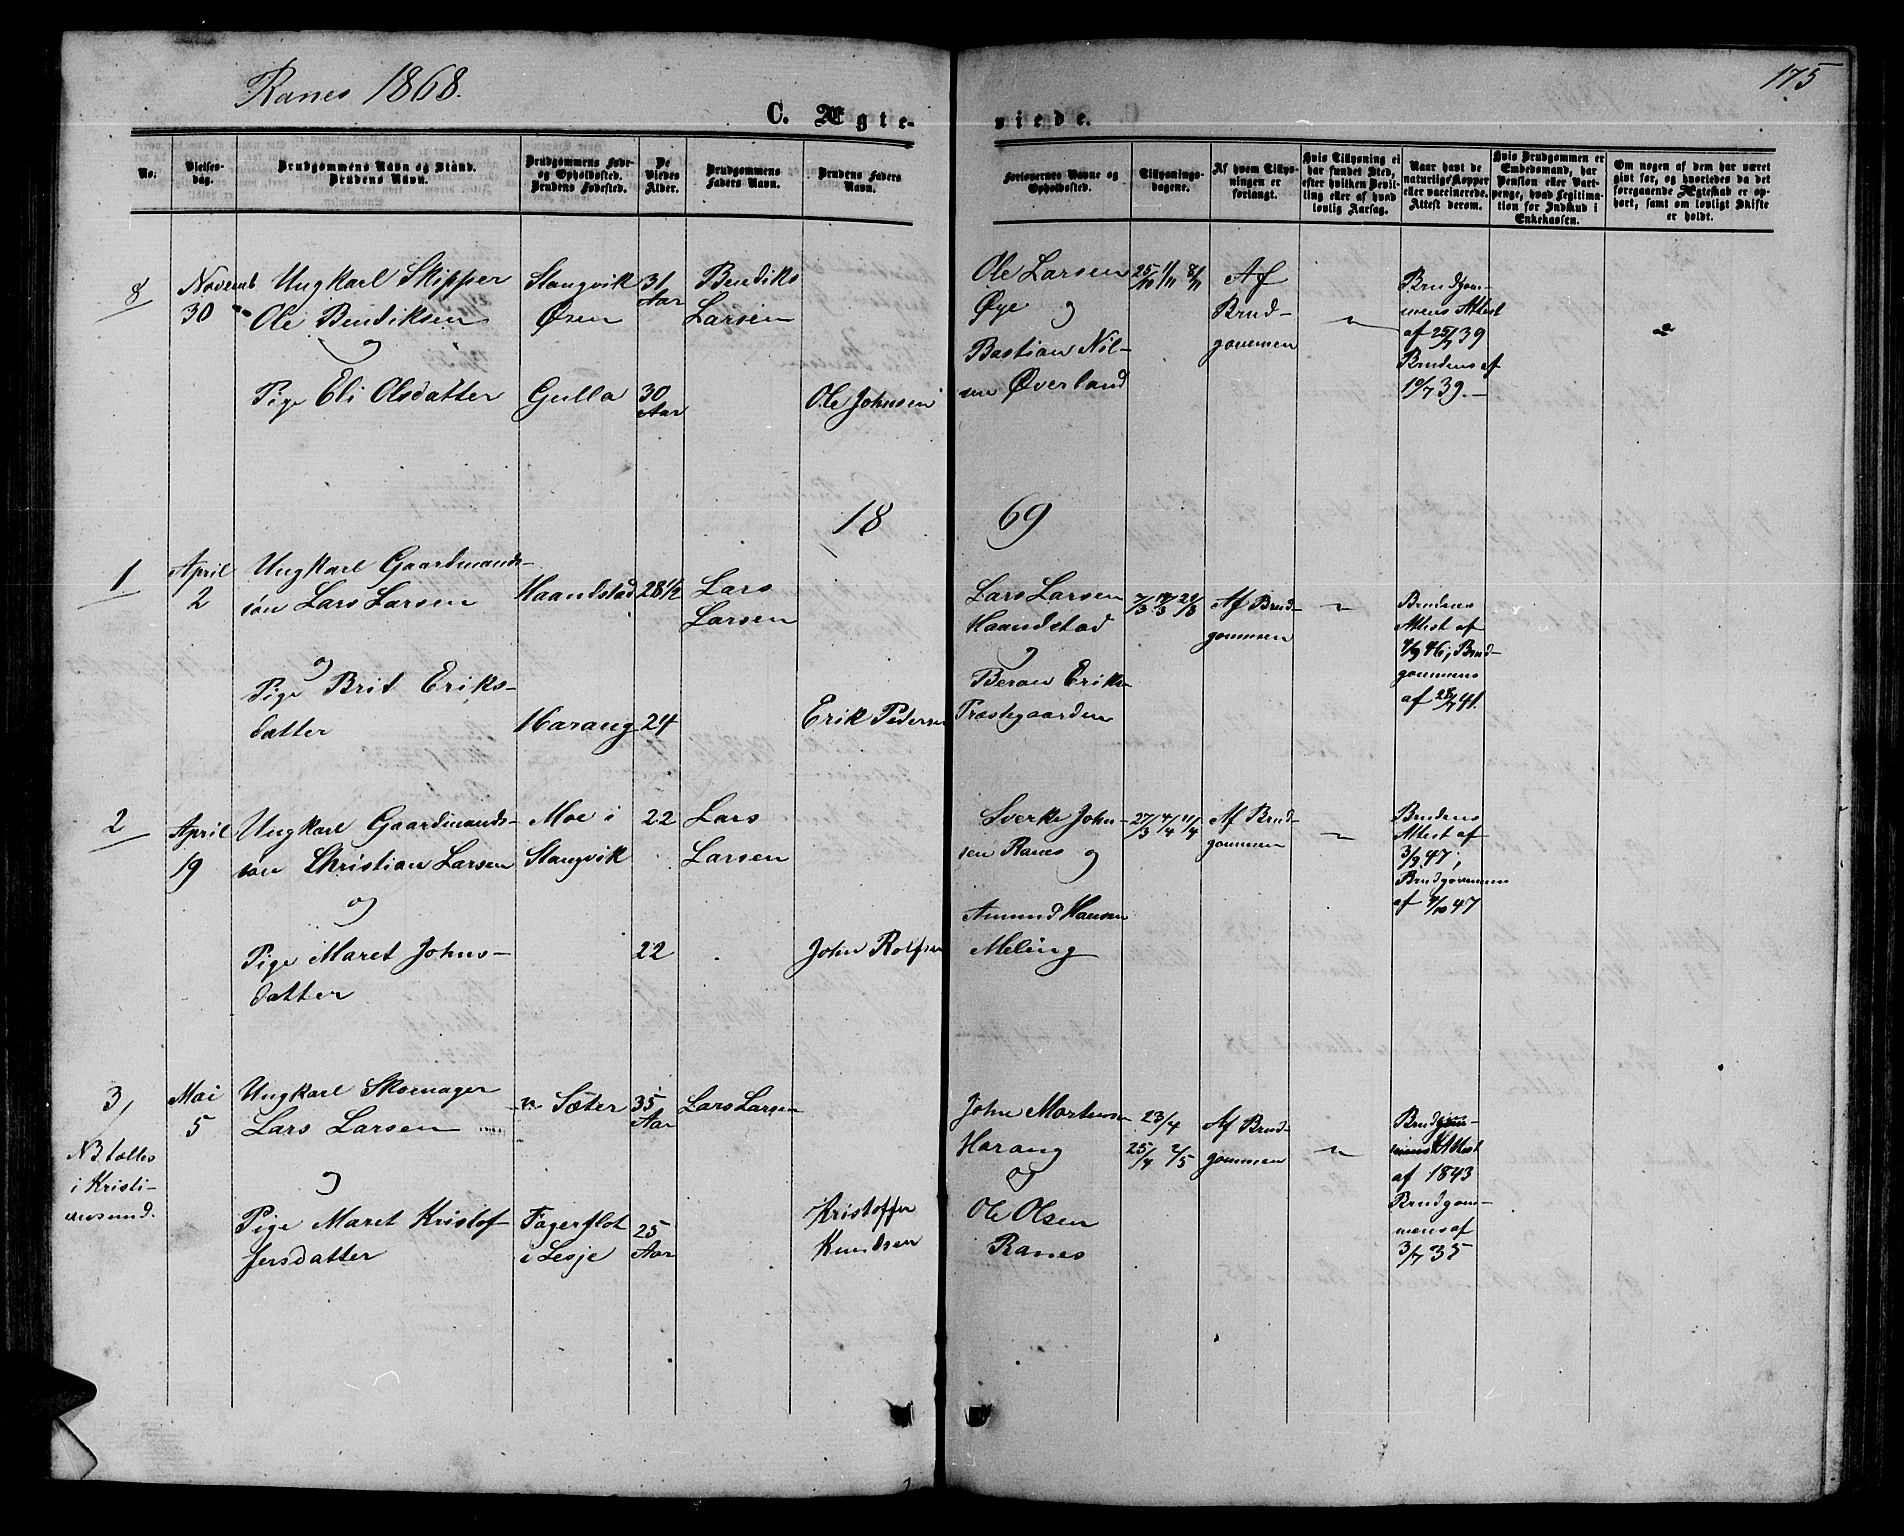 Ranes 1868.
175
C. Ægte-
viede.
No.
Vielses-
dag.
Brudgommens Navn og Stand.
Brudens Navn.
Brudgommens Føde-
og Opholdssted.
Brudens Fødested.
De
Viedes
Alder.
Brudgommens
Faders Navn.
Brudens Faders
Navn.
Forlovernes Navne og
Opholdssted.
Tillysnings-
dagene.
Af hvem Tillys-
ningen er
forlangt.
Hvis Tillysning ei
har fundet Sted,
efter hvilken Bevil-
ling eller af hvad
lovlig Aarsag.
Naar havt de
naturlige Kopper
eller vaccinerede.
Attest derom.
Hvis Brudgommen er
Embedsmand, har
Pension eller Vart-
penge, hvad Legitima-
tion for Indskud i
Enkekassen.
Om nogen af dem har været
gift før, og hvorledes da det
foregaaende Ægteskab er op-
hørt, samt om lovligt Skifte
er holdt.
8
Novemb
30
Ungkarl Skipper
Ole Bendiksen
og
Pige Eli Olsdatter
Stangvik
Øsen
Gulla
31
Aar
30
Aar
Bendiks
Larsen
Ole Johnsen
Ole Larsen
Øye og
Bastian Nil-
sen Øverland
25/10 1/11 8/11
Af
Brud-
gommen
Brudgom-
mens Attest
af 25/7 39
Brudens af
10/7 39.
18 69
1
April
2
Ungkarl Gaardmands-
søn Lars Larsen
og
Pige Brit Eriks-
datter
Haandstad
Harang
28 1/2
24
Lars
Larsen
Erik Pedersen
Lars Larsen
Haandstad
og
Beraon Eriks-
Præstegaarden
7/3 14/3 21/3
Af Brud-
gommen
Brudens
Attest af
4/9 46; Brud-
gommens
af 28/7 41.
2
April
19
Ungkarl Gaardmands-
søn Christian Larsen
og
Pige Maret Johns-
datter
Moe i
Stangvik
22
22
Lars
Larsen
John Rolfsen
Sverke John-
sen Ranes og
Amund Hansen
Meling
27/3 4/4 11/4
Af Brud-
gommen
Brudens
Attest af
3/9 47;
Brudgommens
af 4/10 47
3
Mai
5
NB. tolles
i Kristi-
ansund.
Ungkarl Skomager
Lars Larsen
og
Pige Maret Kristof-
fersdatter
Sæter
Fagerflot
i Lesje
35
Aar
25
Aar
Lars Larsen
Kristoffer
Knudsen
John Mortensen
Harang
og
Ole Olsen
Ranes
23/4
25/4 2/5
Af Brud-
gommen
Brudgom-
mens Attest
af 1843
Brudgom-
mens af
3/7 35